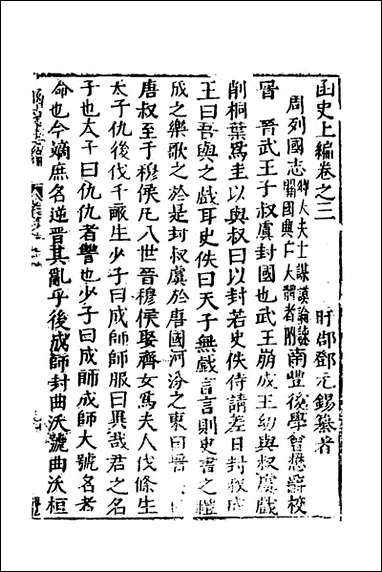 函史上編卷之三
盱郡鄧元錫纂著
周列國志 卿大夫士謀謨論議關國興亡大體者附 南豐後學曾懋爵校
晉 晉武王子叔虞封國也武王崩成王幼與叔虞戲
削桐葉爲圭以與叔曰以封若史佚侍請差日封叔虞
王曰吾與之戲耳史佚曰天子無戲言言則史書之禮
成之樂歌之於是封叔虞於唐國河汾之東曰晉
唐叔至于穆侯凡八世晉穆侯娶齊女爲夫人伐條生
太子仇後伐千畝生少子曰成師師服曰異哉君之名
子也太子曰仇仇者讐也少子曰成師成師大號名者
命也今嫡庶名逆晉其亂乎後成師封曲沃號曲沃桓